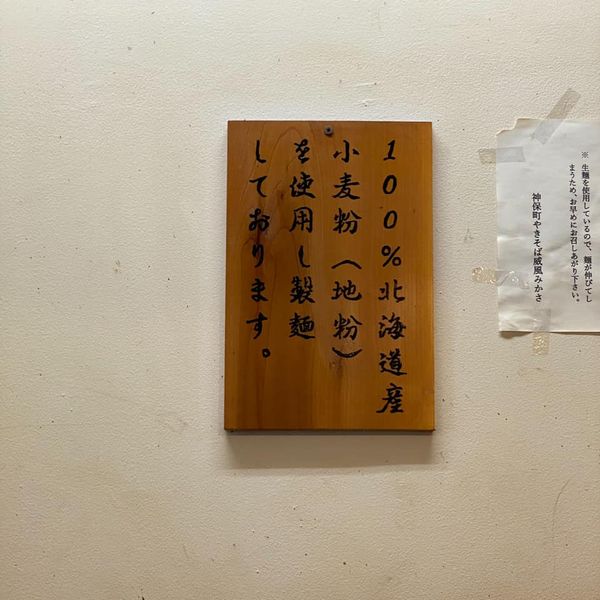 100%北海道産
小麦粉(地粉)
を使用し製麺
しております。
※ 生麺を使用しているので、麺が伸びてし
まうため、お早めにお召しあがり下さい。
神保町やきそば威風みかさ